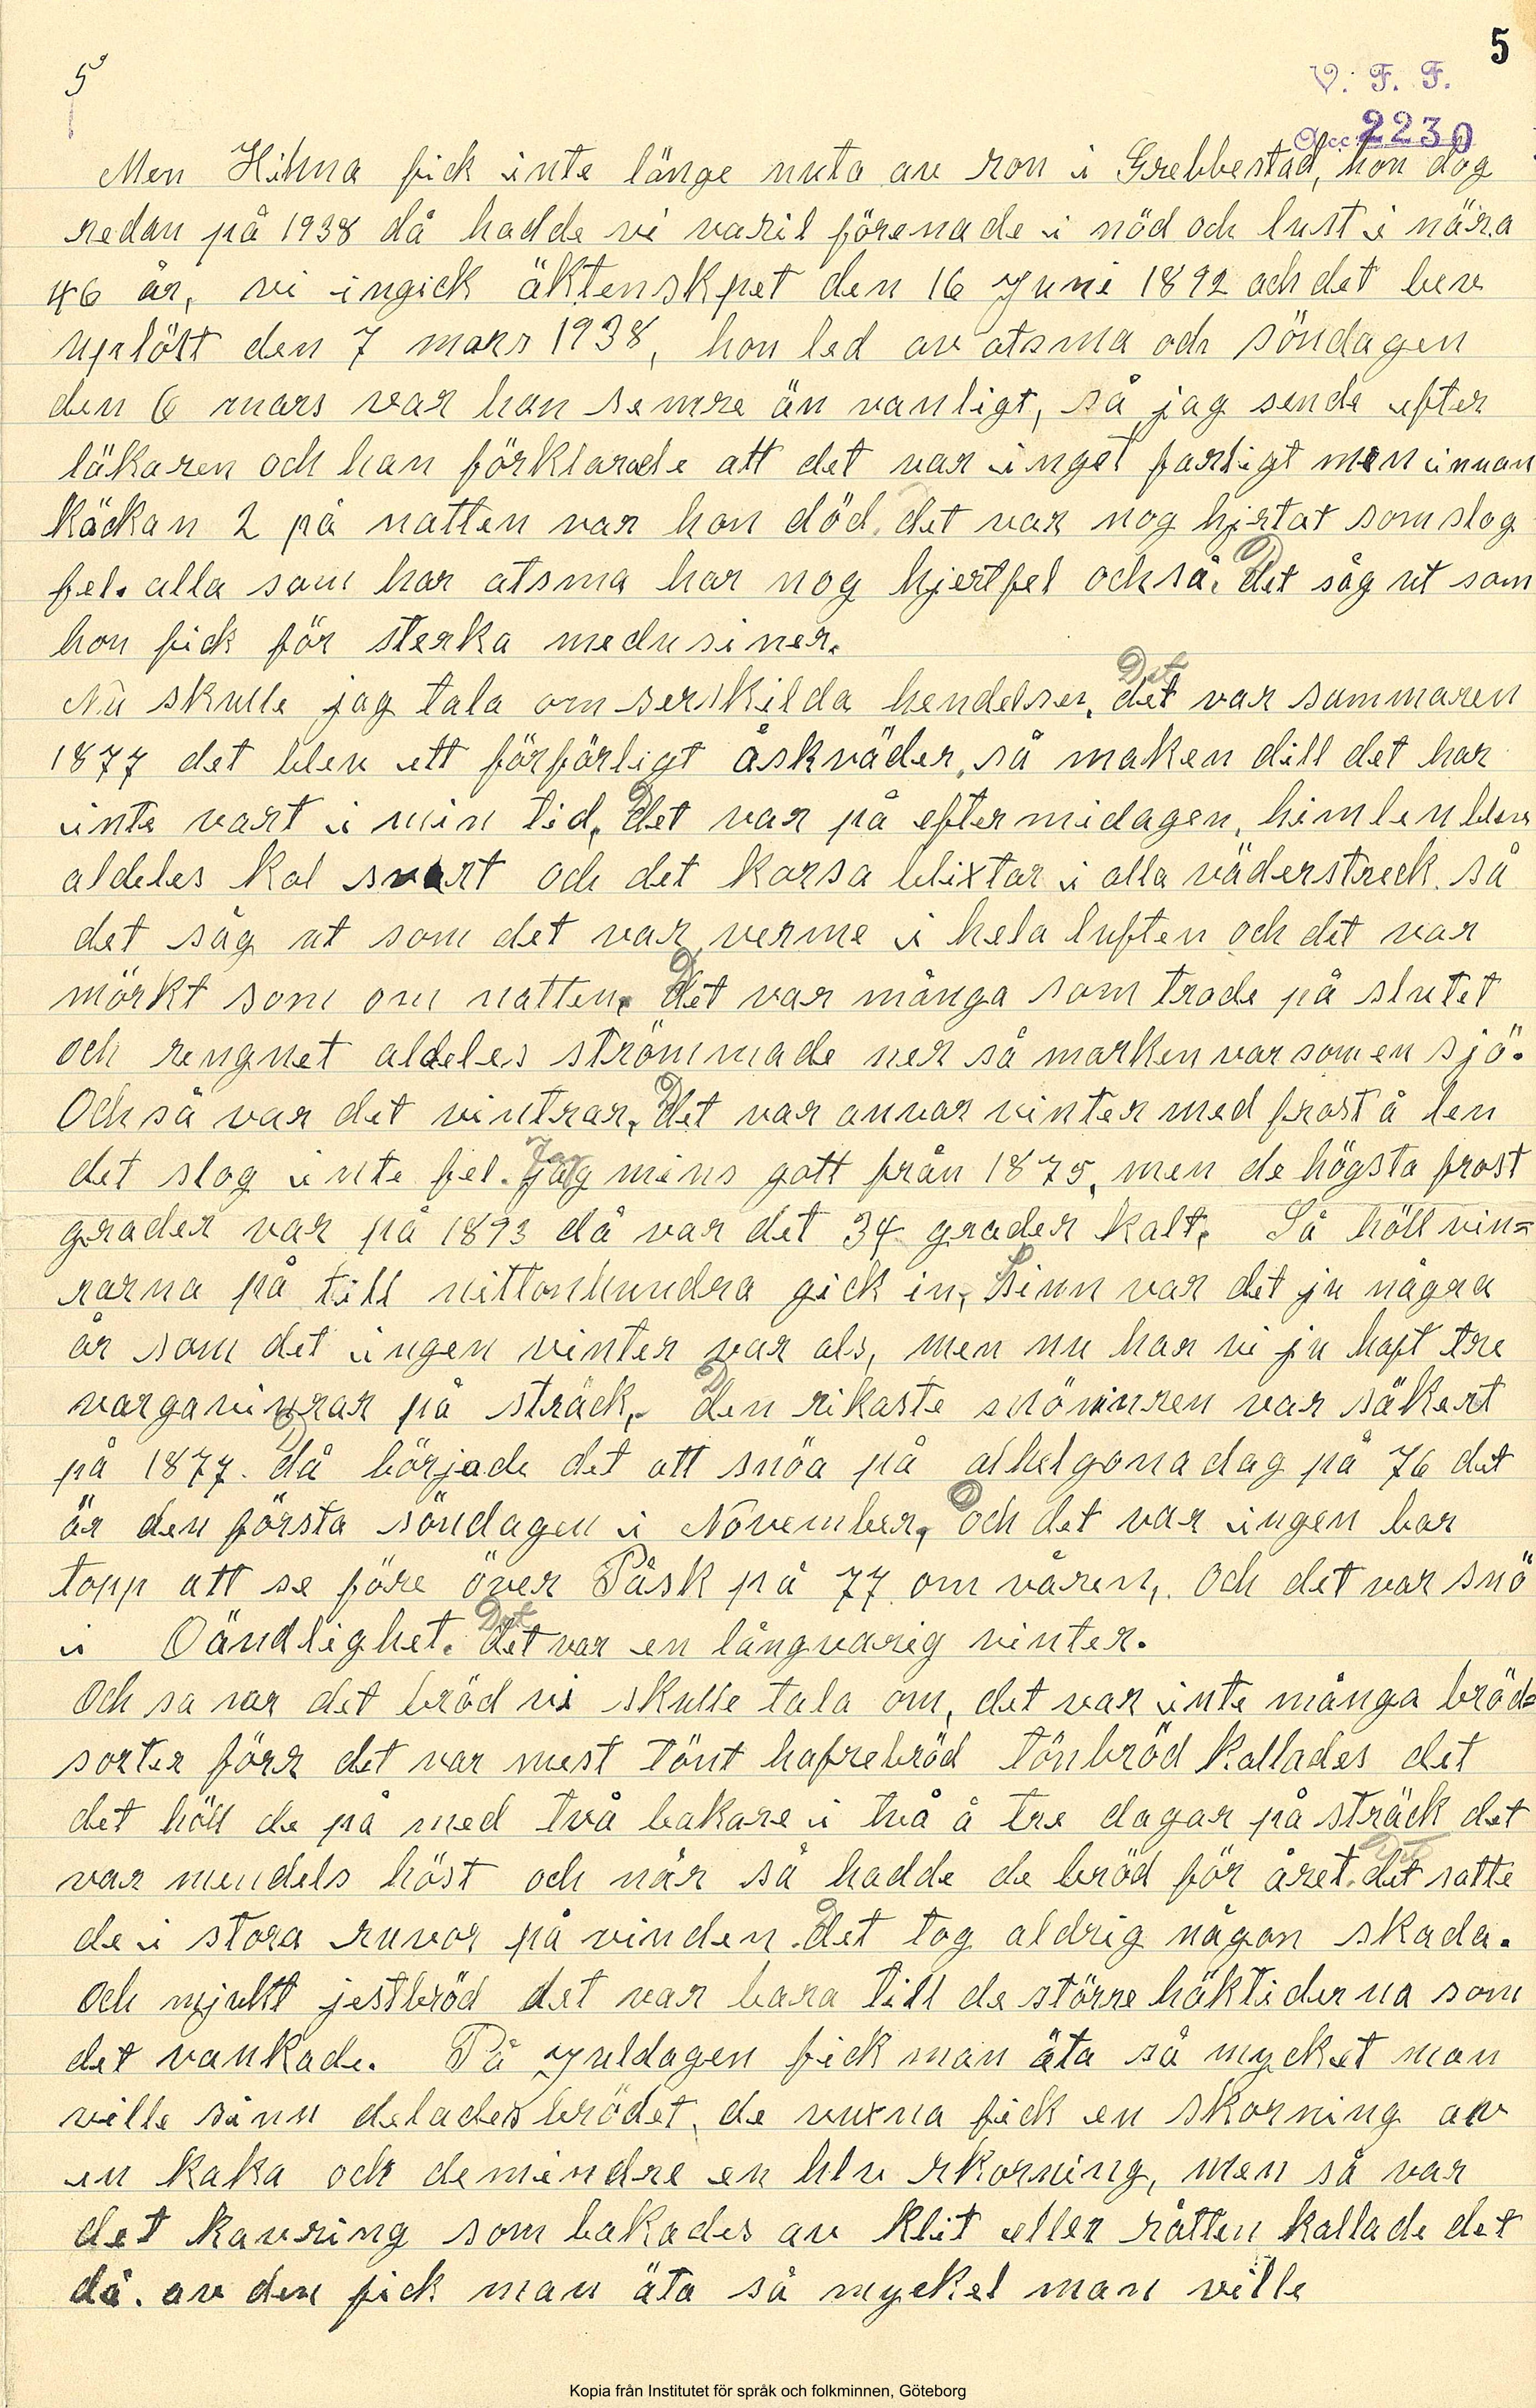 5
5
V. F. F.
Acc 2230
Men Hilma fick inte länge nuta av ron i Grebbestad, hon dog
redan på 1938 då hadde vi varit förenade i nöd och lust i nära
46 år, vi ingick äktenskpet den 16 Juni 1892 och det blev
upplöst den 7 mars 1938, hon led av atsma och söndagen
den 6 mars var hon semre än vanligt, så jag sende efter
läkaren och han förklarade att det var inget farligt men innan
kåckan 2 på natten var hon död. det var nog hjrtat som slog
fel. alla som har atsma har nog hjertfel också. Det såg ut som
hon fick för sterka medisiner.
Nu skulle jag tala om serskilda hendelser. Det det var sammaren
1877 det blev ett förfärligt åskväder, så maken dill det har
inte vart i min tid. Det var på eftermidagen, himlen blev
aldeles kol svart och det korsa blixtar i alla väderstreck. så
det såg ut som det var verme i hela luften och det var
mörkt som om natten. Det var många som trode på slutet
och rengnet aldeles strömmade ner så marken var som en sjö.
Och så var det vintrar. Det var anvar vinter med frost å len
det slog inte fel. Jag jag mins gott från 1875, men de högsta frost
grader var på 1893 då var det 34 grader kalt. Så höll vin=
rarna på till nittonhundra gick in, Sinn var det ju några
år som det ingen vinter var als, men nu har vi ju haft tre
vargavinrar på sträck. Den rikaste snövinren var säkert
på 1877. Då började det att snöa på alhelgona dag på 76 det
är den första söndagen i November. Och det var ingen bar
topp att se före över Påsk på 77 om våren,. Och det var snö
i Oändlighet. Det det var en långvarig vinter.
Och sa var det bröd vi skulle tala om, det var inte många bröd=
sorter förr det var mest tönt hafrebröd tönbröd kallades det
det höll de på med två bakare i två å tre dagar på sträck det
var mendels höst och vår så hadde de bröd för året. Det det satte
de i stora ruvor på vinden. Det tog aldrig någon skada.
Och mjukt jestbröd det var bara till de större höktiderna som
det vankade. På Juldagen fick man äta så mycket man
ville sånn delades brödet, de vuxna fick en skorning av
en kaka och de mindre en hlv skorning, men så var
det kavring som bakades av klit eller råtten kallade det
då. av den fick man äta så myckel man ville
Kopia från Institutet för språk och folkminnen, Göteborg